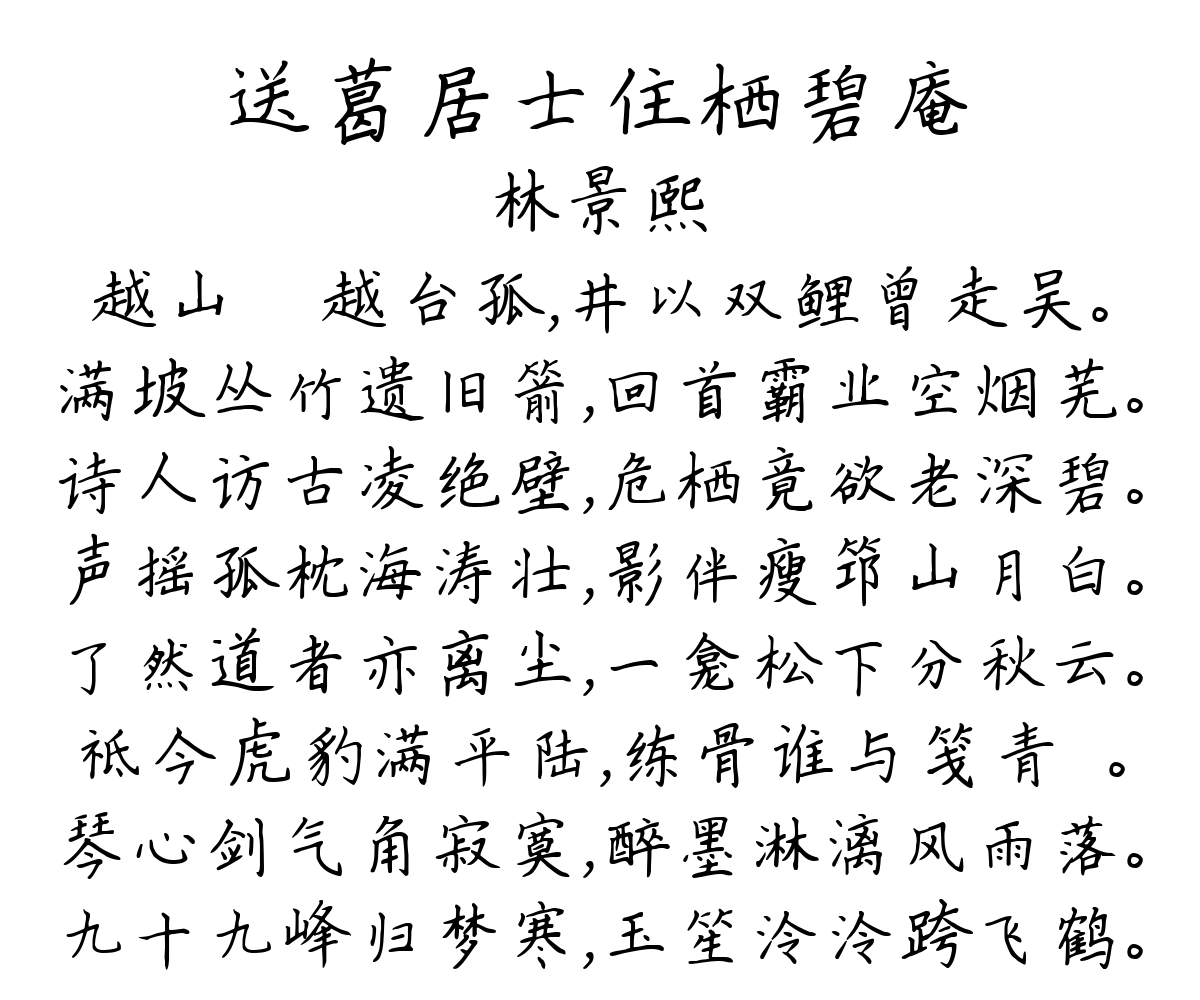 送葛居士住栖碧庵
林景熙
越山 越台孤,井以双鲤曾走吴。
满坡丛竹遗旧箭,回首霸业空烟芜。
诗人访古凌绝壁,危栖竟欲老深碧。
声摇孤枕海涛壮,影伴瘦筇山月白。
了然道者亦离尘,一龛松下分秋云。
祗今虎豹满平陆,练骨谁与笺青 。
琴心剑气角寂寞,醉墨淋漓风雨落。
九十九峰归梦寒,玉笙泠泠跨飞鹤。